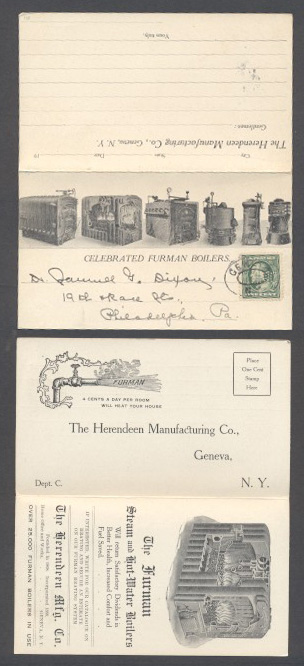 Yours truly,
Gentlemen:
City
State
Date
19
The Herendeen Manufacturing Co., Geneva, N. Y.
CELEBRATED FURMAN BOILERS
Dr Samuel G. Dixon,
19th & Race Sts.
Philadelphia, Pa.
Place
One Cent
Stamp
Here
FURMAN
4 CENTS A DAY PER ROOM
WILL HEAT YOUR HOUSE
The Herendeen Manufacturing Co.,
Geneva,
Dept. C.
N. Y.
The Furman
Steam and Hot-Water Boilers
Will return Satisfactory Dividends in
Better Health, Increased Comfort and
Fuel Saved.
IF INTERESTED, WRITE FOR OUR CATALOGUE ON
HEATING AND SPECIFY AN ESTIMATE
ON OUR FURMAN HEATING SYSTEM
The Herendeen Mfg. Co.
Home Office and Works, GENEVA, N. Y.
OVER 25,000 FURMAN BOILERS IN USE